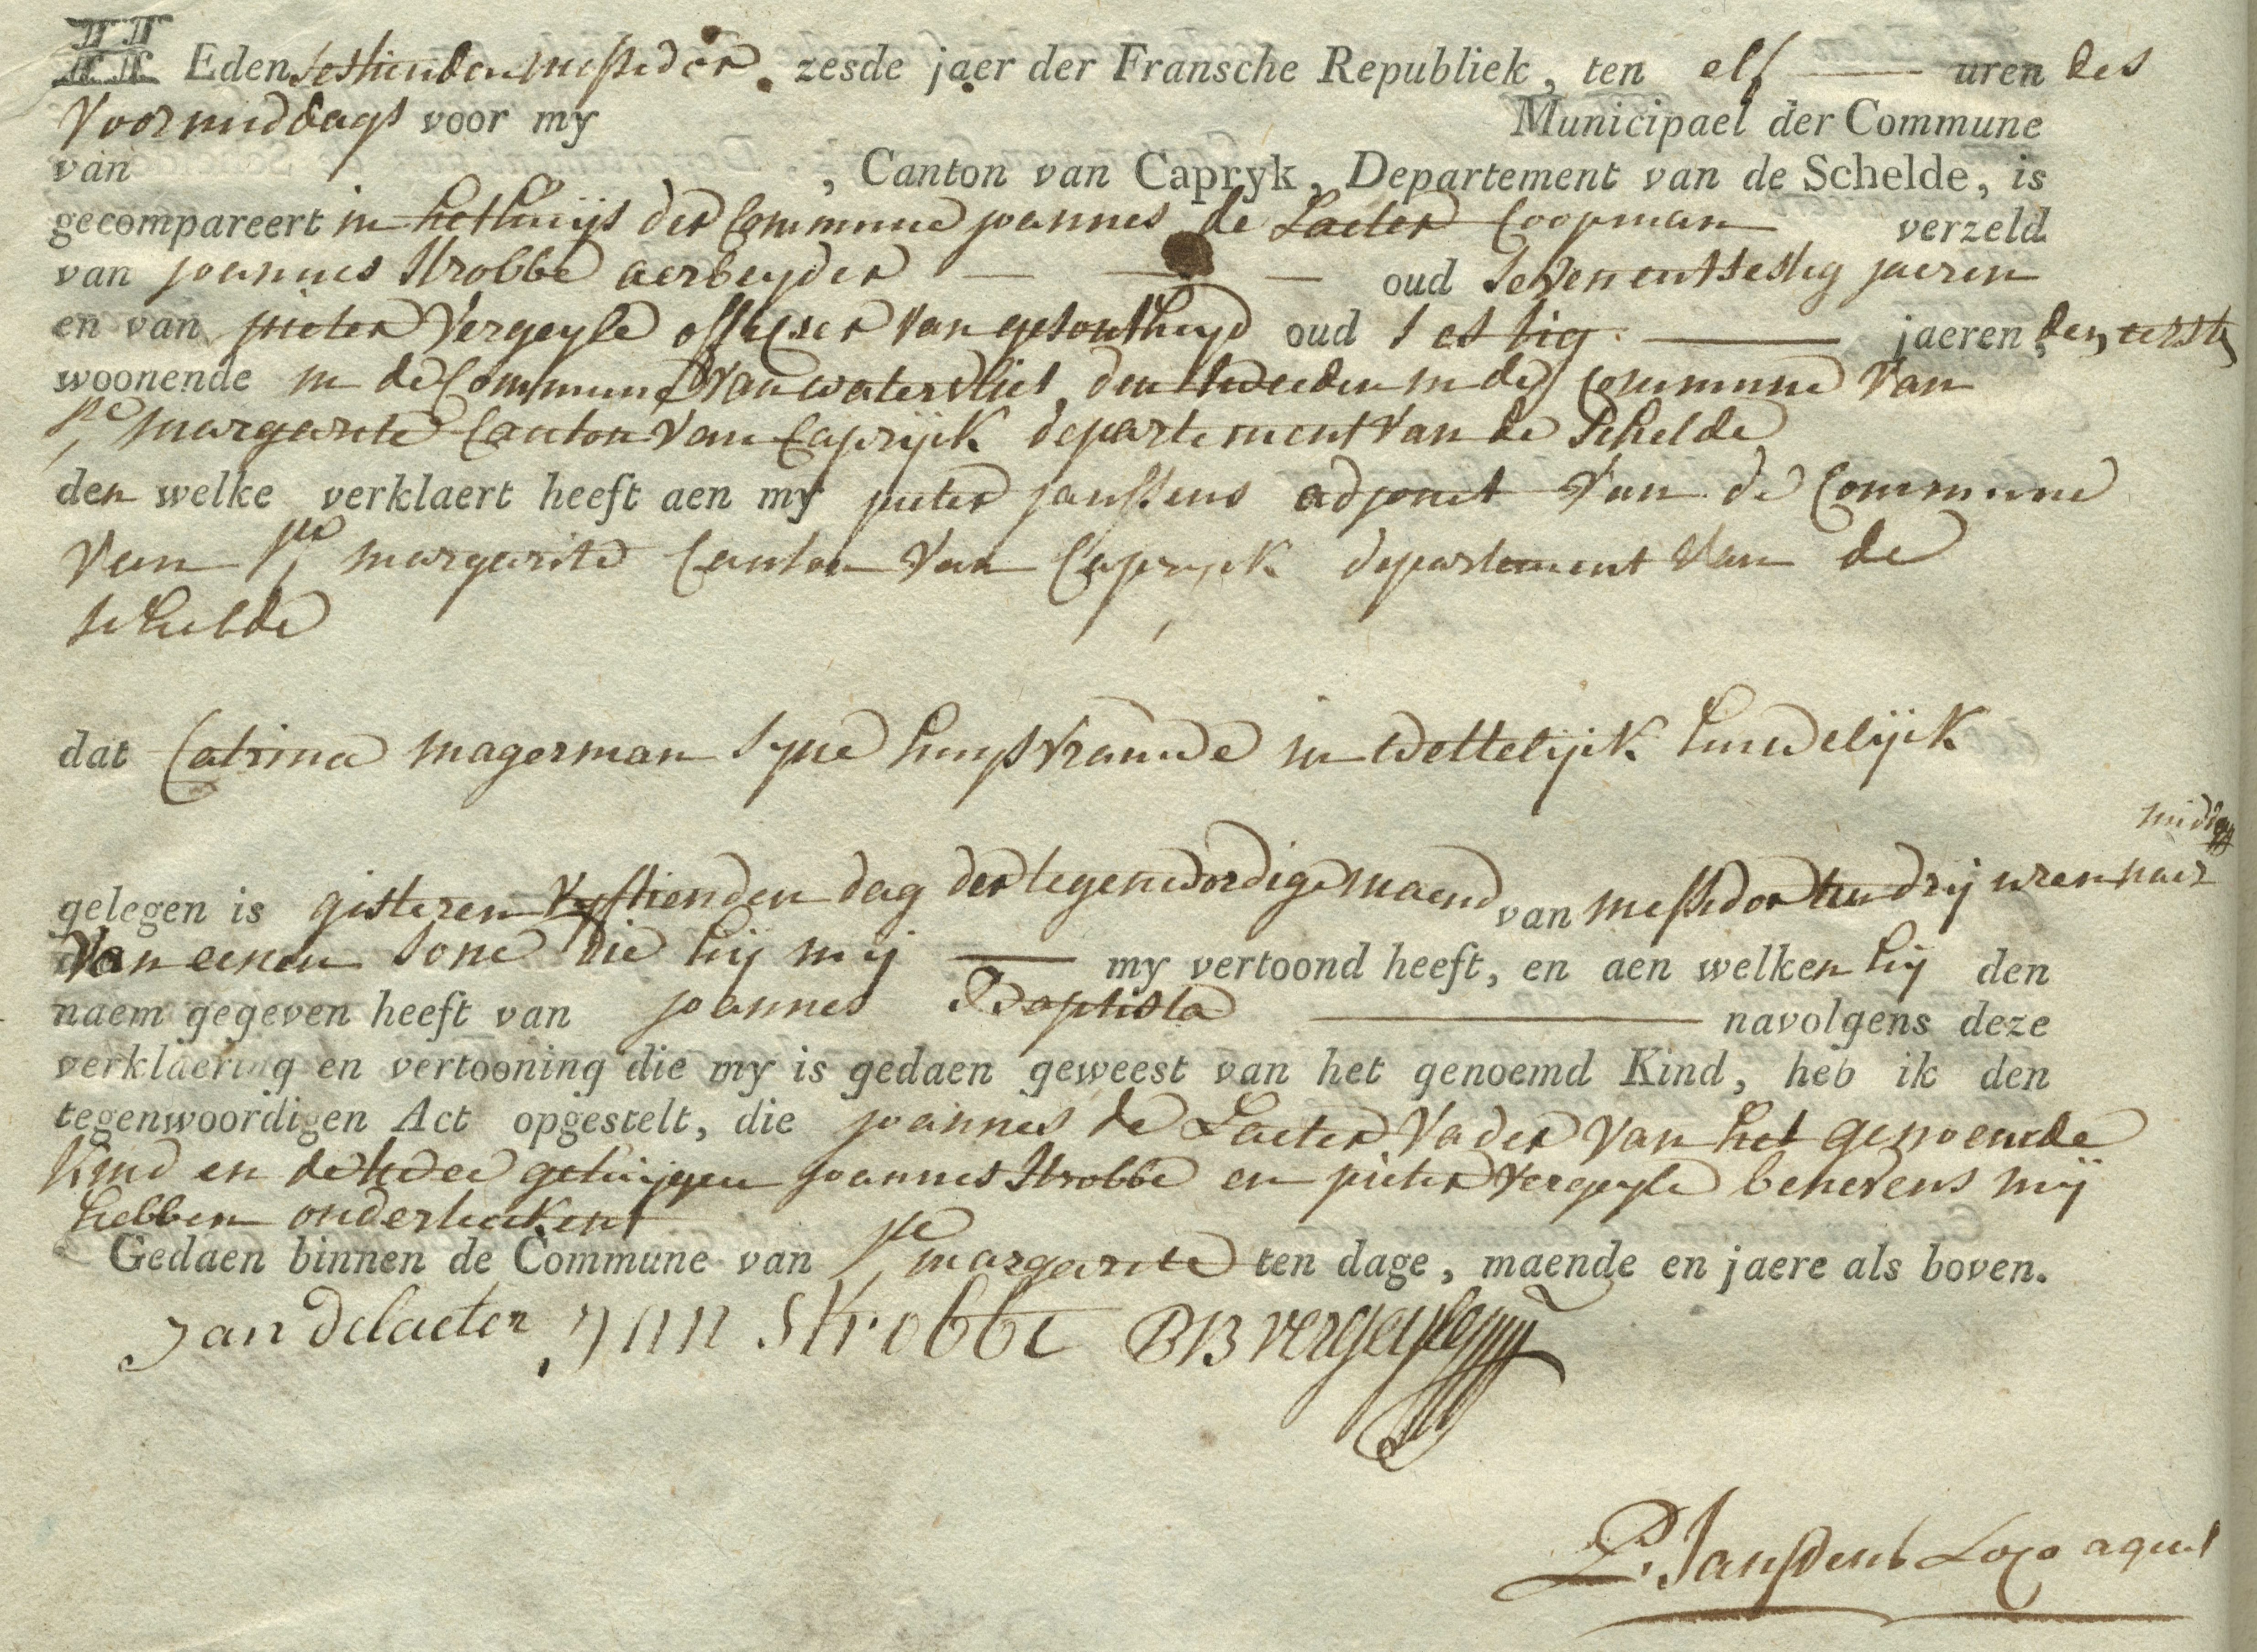 HEden sesthienden messidor. zesde jaer der Fransche Republiek, ten elf uren des
voormiddags voor my Municipael der Commune
van , Canton van Capryk, Departement van de Schelde, is
gecompareert in het huijs der Commune joannes de Laeter Coopman verzeld
van joannes Strobbe aerbeyder oud sevenentsestig jaeren
en van pieter Vergeyle officier van gesontheyd oud sestig jaeren, den eersten
woonende in de Commune van watervliet, den tweeden in de Commune van
Ste margarite Canton van Caprijck departement van de Schelde
den welke verklaert heeft aen my pieter janssens adjonct van de Commune
van Ste margarite Canton van Capryck departement van de
schelde
dat Catrina magerman syne huysvrauwe in wettelijck huwelijck
middags
gelegen is gisteren vyfthienden dag der tegenwordige maend van messidor ten drij uren naer
van eenen sone die hij mij my vertoond heeft, en aen welken hij den
naem gegeven heeft van joannes Baptista navolgens deze
verklaering en vertooning die my is gedaen geweest van het genoemd Kind, heb ik den
tegenwoordigen Act opgestelt, die joannes de Laeter vader van het genoemde
kind en de twee getuijgen joannes Strobbe en pieter vergeyle benevens mij
hebben onderteekent
Gedaen binnen de Commune van Ste margarite ten dage, maende en jaere als boven.
Jan De laeter, Jan Strobbe vergeyle
P. Janssens Loco agent